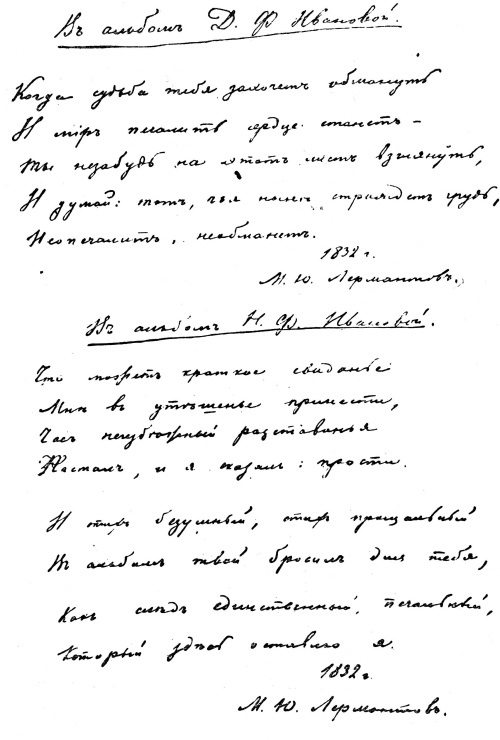 Въ альбомъ Д. Ф Ивановой.
Когда судьба тебя захочетъ обмануть
И міръ печалить сердце станетъ –
Ты незабудь на этотъ листъ взглянуть,
И думай: тотъ, чья ныне страждетъ грудь,
Неопечалитъ, необманетъ.
1832 г.
М. Ю. Лермантовъ.
Въ альбомъ Н. Ф. Ивановой.
Что можетъ краткое свиданье
Мнѣ въ утѣшенье принести,
Часъ неизбѣжный разставанья
Насталъ, и я сказалъ: прости.
И стихъ безумный, стихъ прощальный
Въ альбомъ твой бросилъ для тебя,
Какъ слѣдъ единственный, печальный,
Который здѣсь оставлю я.
1832 г.
М. Ю. Лермонтовъ.